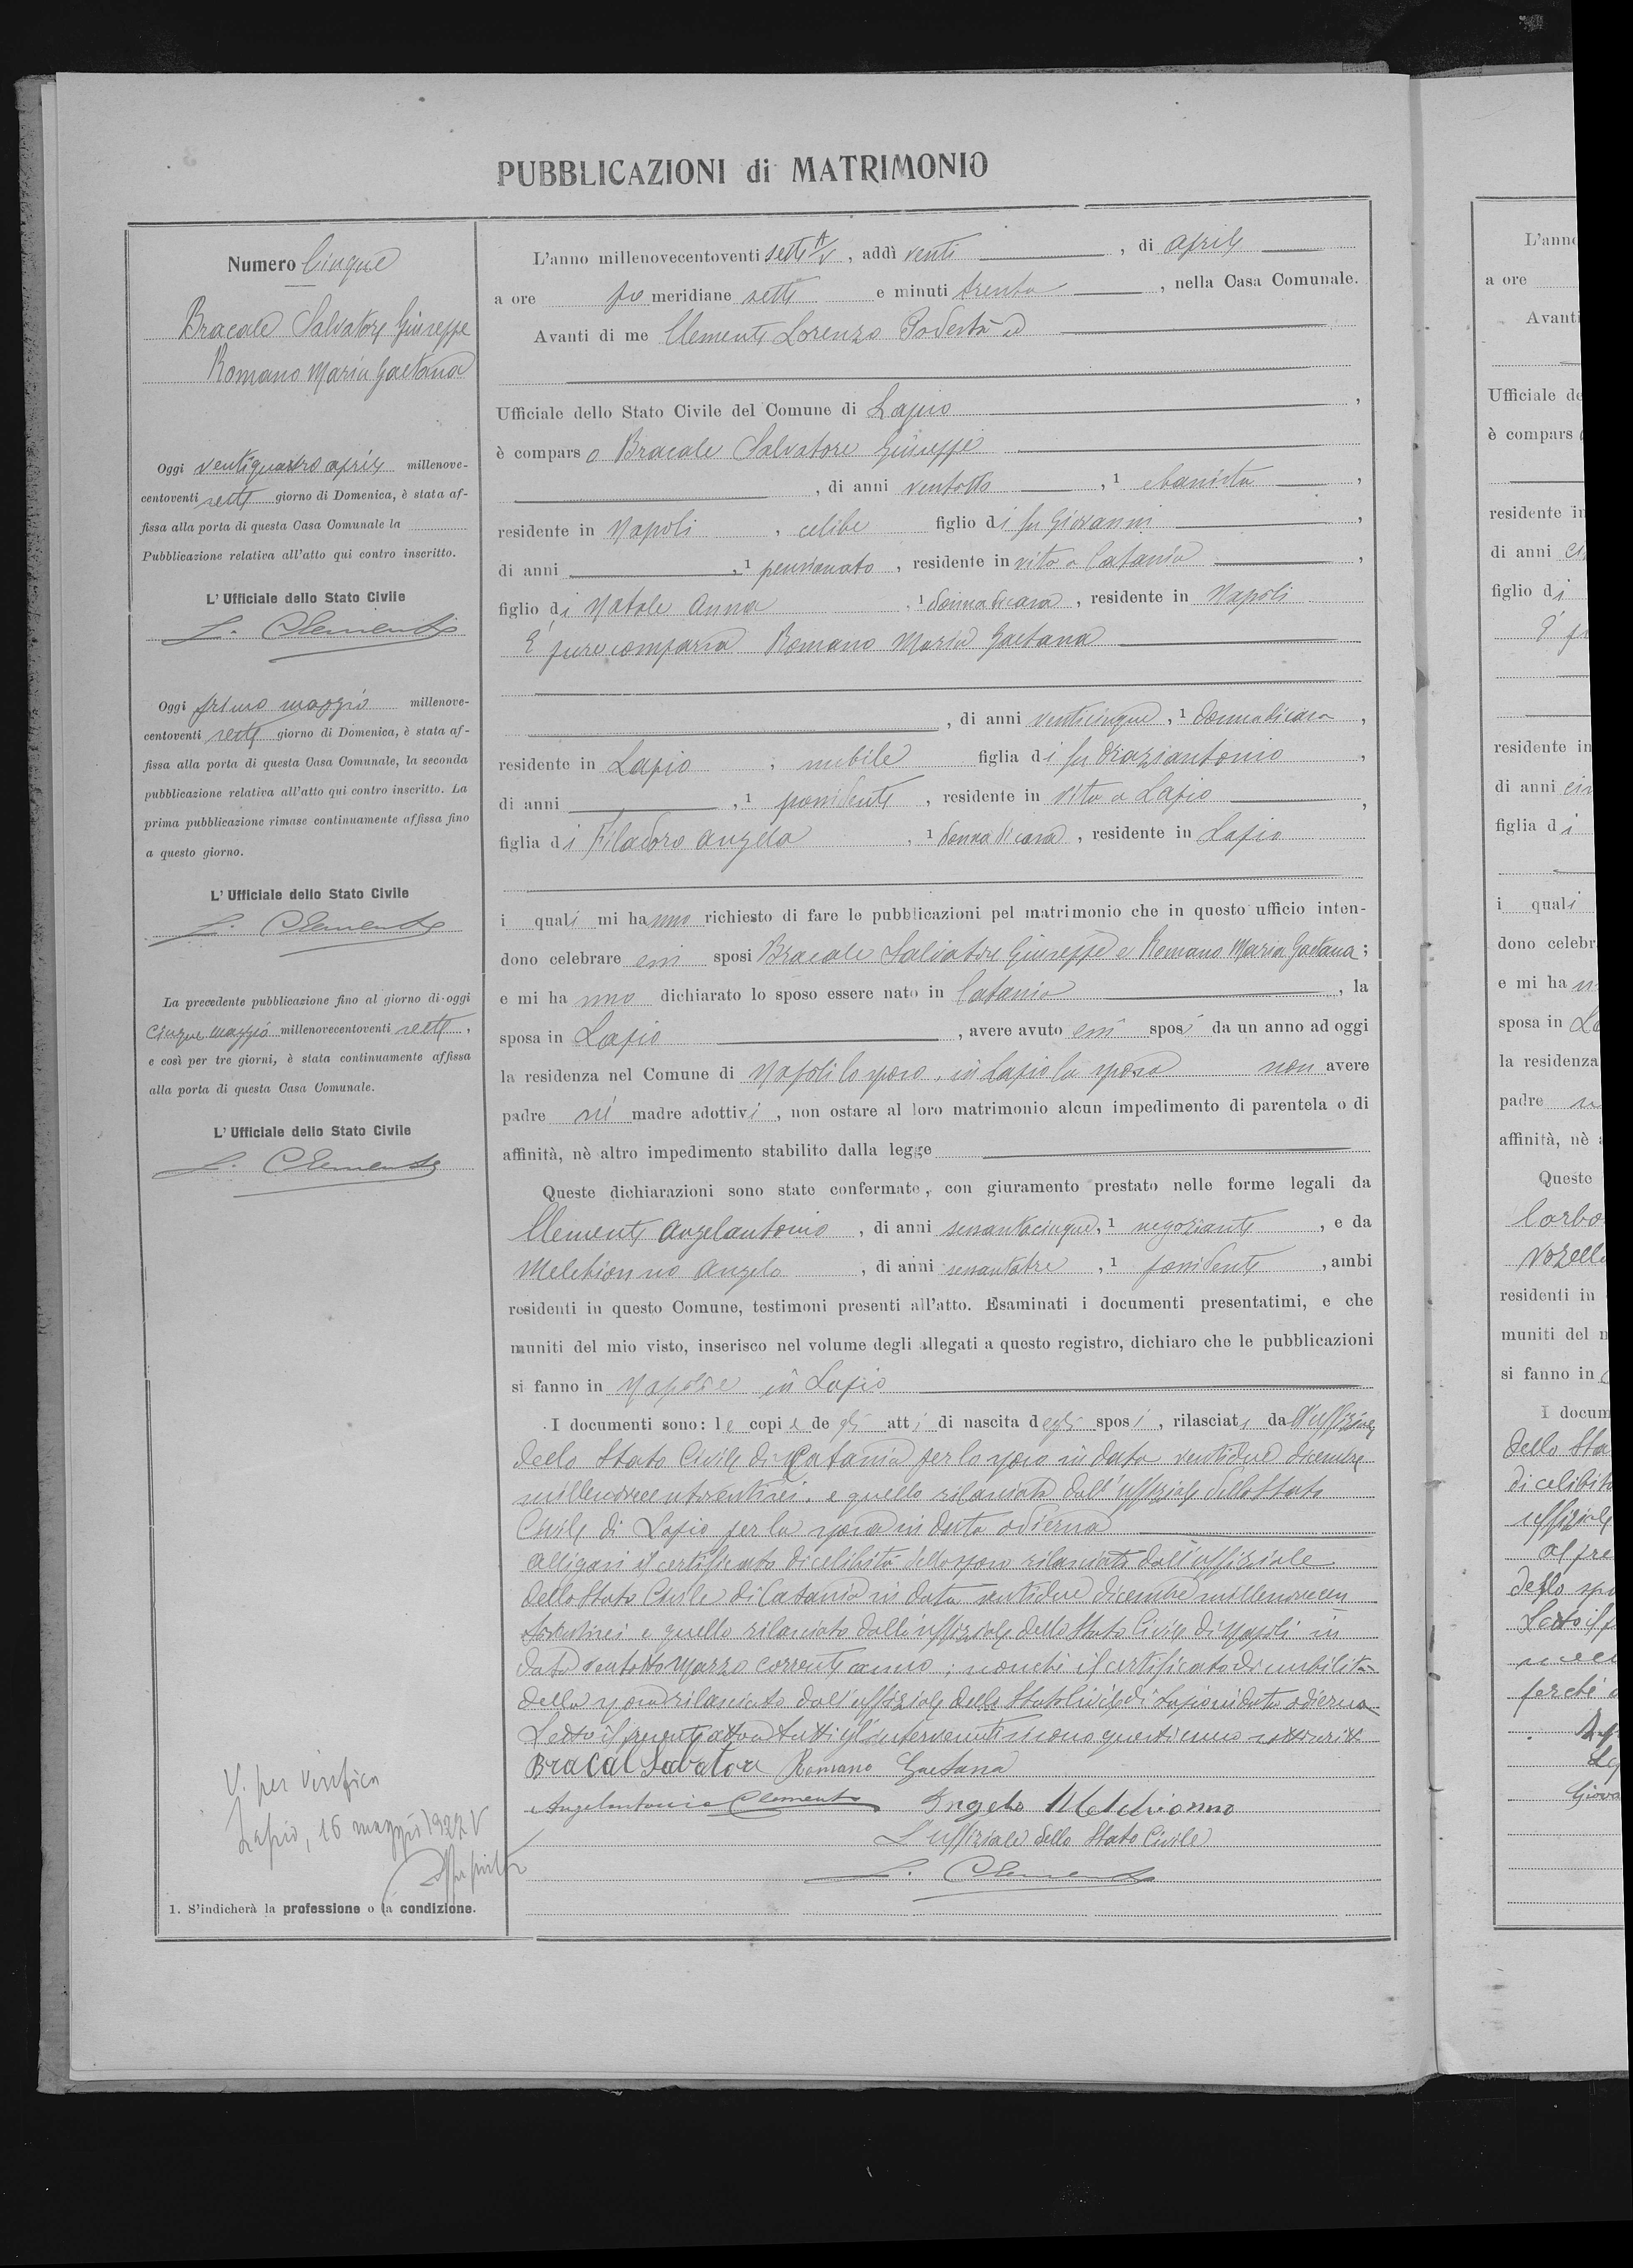 PUBBLICAZIONI di MATRIMONIO
Numero Cinque
Bracale Salvatore Giuseppe
Romano Maria Gaetana
Oggi ventiquattro aprile millenove-
centoventi sette giorno di Domenica, è stata af-
fissa alla porta di questa Casa Comunale la
Pubblicazione relativa all'atto qui contro inscritto.
L'Ufficiale dello Stato Civile
L. Clemente
Oggi primo maggio millenove-
centoventi sette giorno di Domenica, è stata af-
fissa alla porta di questa Casa Comunale, la seconda
pubblicazione relativa all'atto qui contro inscritto. La
prima pubblicazione rimase continuamente affissa fino
a questo giorno.
L'Ufficiale dello Stato Civile
L. Clemente
La precedente pubblicazione fino al giorno di oggi
cinque maggio millenovecentoventi sette,
e così per tre giorni, è stata continuamente affissa
alla porta di questa Casa Comunale.
L'Ufficiale dello Stato Civile
L. Clemente
V. per verifica
Lapio, 16 maggio 1927 V
1. S'indicherà la professione o la condizione.
L'anno millenovecentoventi sette A/V, addì venti, di aprile
a ore po meridiane sette e minuti trenta, nella Casa Comunale.
Avanti di me Clemente Lorenzo Podestà ed
Ufficiale dello Stato Civile del Comune di Lapio,
è compars o Bracale Salvatore Giuseppe
, di anni ventotto, 1 ebanista,
residente in Napoli, celibe figlio di fu Giovanni,
di anni , 1 pensionato, residente in vita a Catania,
figlio di Natale Anna, 1 donna di casa, residente in Napoli
È pure comparsa Romano Maria Gaetana
, di anni venticinque, 1 donna di casa,
residente in Lapio, nubile figlia di fu Graziantonio,
di anni , 1 possidente, residente in vita a Lapio,
figlia di Filadoro Angela, 1 donna di casa, residente in Lapio
i quali mi hanno richiesto di fare le pubblicazioni pel matrimonio che in questo ufficio inten-
dono celebrare essi sposi Bracale Salvatore Giuseppe e Romano Maria Gaetana;
e mi ha nno dichiarato lo sposo essere nato in Catania, la
sposa in Lapio, avere avuto essi sposi da un anno ad oggi
la residenza nel Comune di Napoli lo sposo, in Lapio la sposa non avere
padre nè madre adottivi, non ostare al loro matrimonio alcun impedimento di parentela o di
affinità, nè altro impedimento stabilito dalla legge
Queste dichiarazioni sono state confermate, con giuramento prestato nelle forme legali da
Clemente Angelantonio, di anni sessantacinque, 1 negoziante, e da
Melchionno Angelo, di anni sessantatre, 1 possidente, ambi
residenti in questo Comune, testimoni presenti all'atto. Esaminati i documenti presentatimi, e che
muniti del mio visto, inserisco nel volume degli allegati a questo registro, dichiaro che le pubblicazioni
si fanno in Napoli e in Lapio
I documenti sono: le copie degli atti di nascita degli sposi, rilasciate dall'uffiziale
dello Stato Civile di Catania per lo sposo in data ventidue dicembre
millenovecentoventisei, e quello rilasciato dall'uffiziale dello Stato
Civile di Lapio per la sposa in data odierna
Alligansi il certificato di celibità dello sposo rilasciato dall'uffiziale
dello Stato Civile di Catania in data ventidue dicembre millenovecen
toventisei e quello rilasciato dall'uffiziale dello Stato Civile di Napoli in
data ventotto Marzo corrente anno; nonchè il certificato di nubilità
della sposa rilasciato dall'uffiziale dello Stato Civile di Lapio in data odierna
Letto il presente atto a tutti gl'intervenuti
Bracal Salvatore Romano Gaetana
Angelantonio Clemente Angelo Melchionno
L'uffiziale dello Stato Civile
L. Clemente
L'anno
a ore
Avanti
Ufficiale de
è compars
residente in
di anni
figlio di
residente in
di anni
figlia di
i quali
dono celebr
e mi ha
sposa in
la residenza
padre
affinità, nè
Queste
residenti in
muniti del
si fanno in
I docum
dello Sta